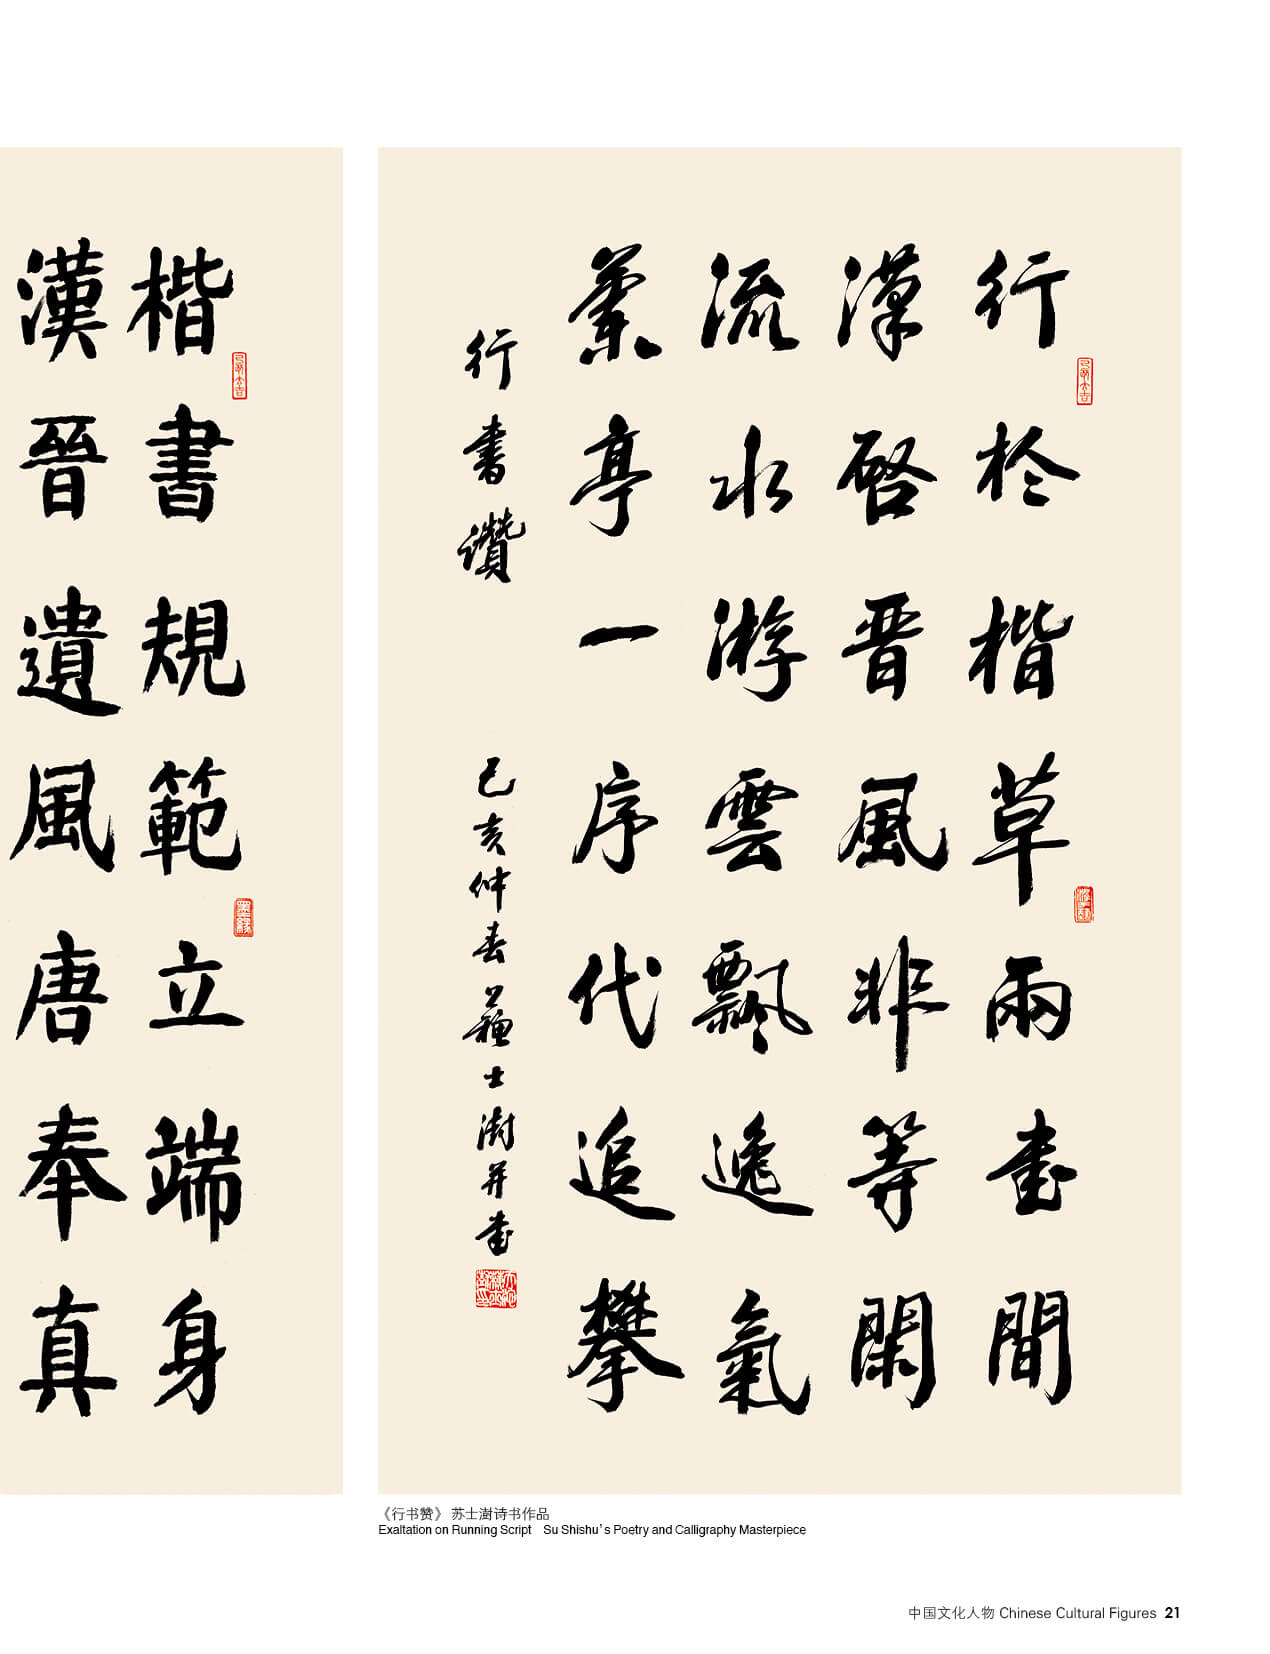 楷書規範立端身
漢晉遺風唐奉真
行於楷草兩書間
漢啓晉風非等閑
流水游雲飄逸氣
蘭亭一序代追攀
行書讚
己亥仲春蘇士澍并書
《行书赞》 苏士澍诗书作品
Exaltation on Running Script Su Shishu's Poetry and Calligraphy Masterpiece
中国文化人物 Chinese Cultural Figures 21